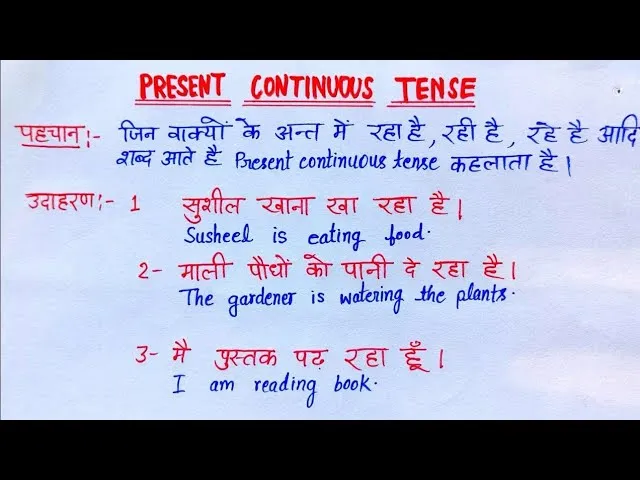 PRESENT CONTINUOUS TENSE
पहचान:- जिन वाक्यों के अन्त में रहा है, रही है, रहे है आदि
शब्द आते है Present continuous tense कहलाता है।
उदाहरण:- 1 सुशील खाना खा रहा है।
Susheel is eating food.
2- माली पौधों को पानी दे रहा है।
The gardener is watering the plants.
3- मै पुस्तक पढ़ रहा हूँ।
I am reading book.